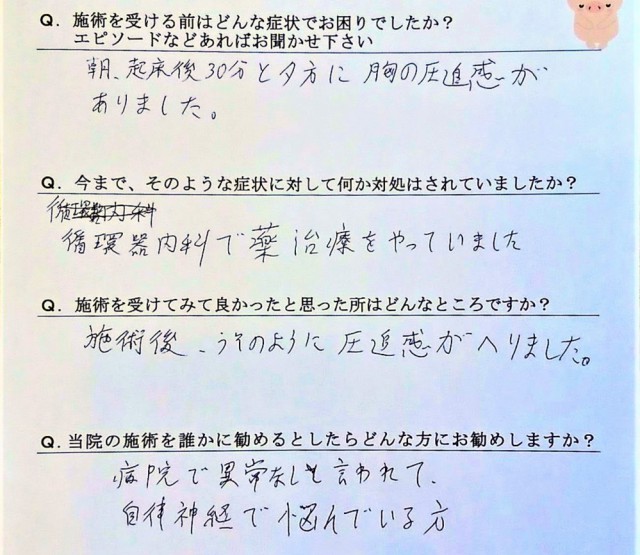 Q．施術を受ける前はどんな症状でお困りでしたか？
エピソードなどあればお聞かせ下さい
朝、起床後30分と夕方に 胸の圧迫感が
ありました。
Q．今まで、そのような症状に対して何か対処はされていましたか？
循環器内科
循環器内科で薬治療をやっていました
Q．施術を受けてみて良かったと思った所はどんなところですか？
施術後、うそのように圧迫感がへりました。
Q．当院の施術を誰かに勧めるとしたらどんな方にお勧めしますか？
病院で異常なしと言われて、
自律神経で悩んでいる方